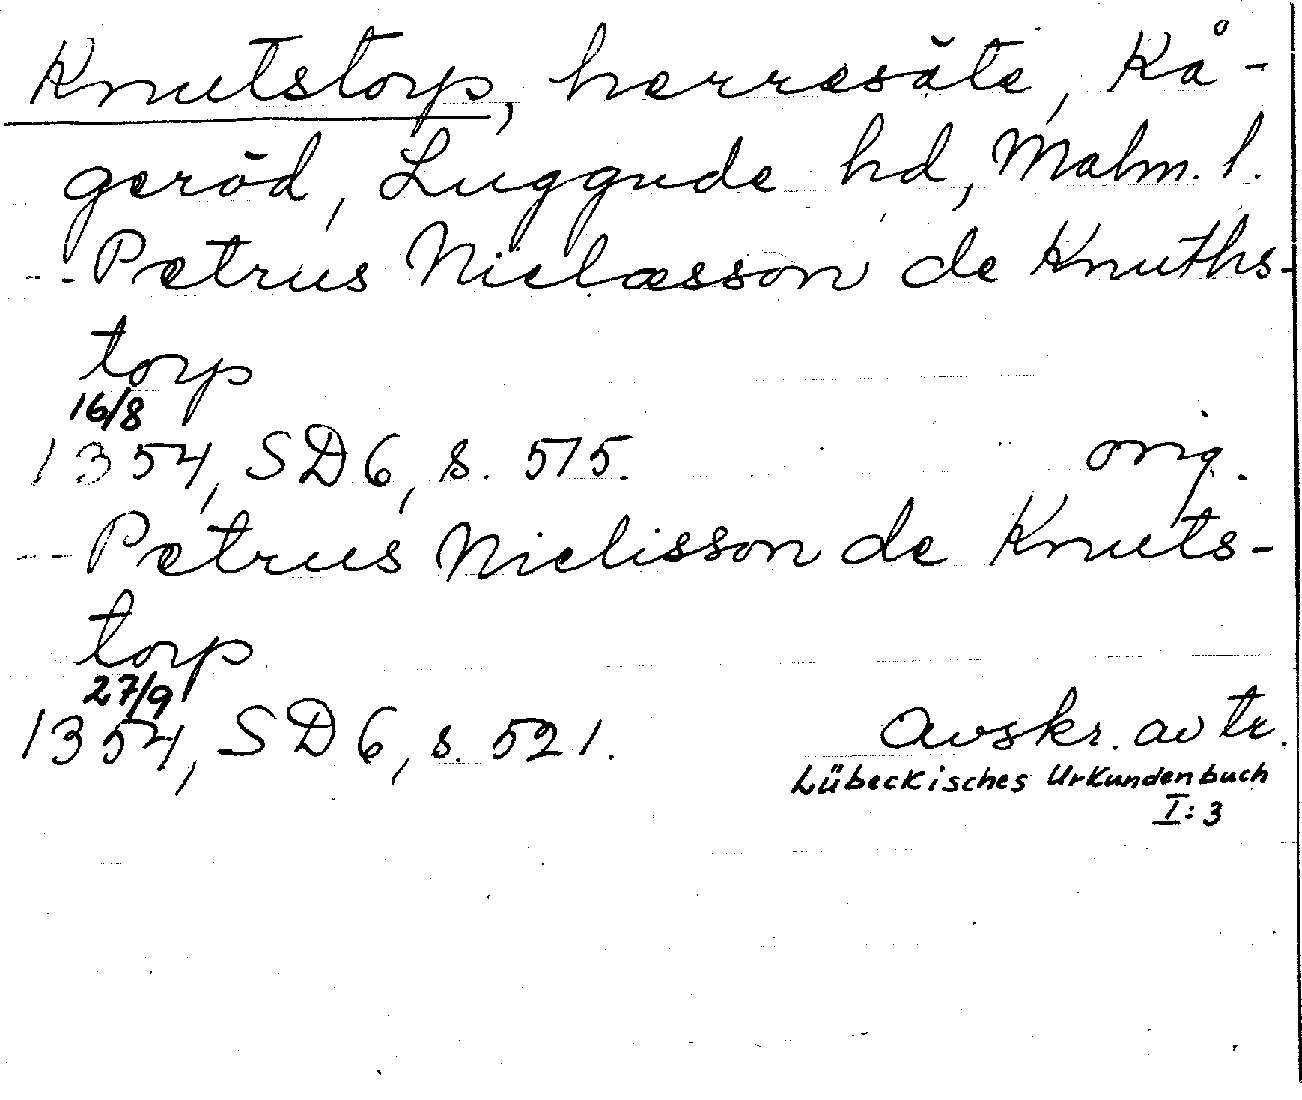 Knutstorp, herresäte, Kå-
geröd, Luggude hd, Malm. l.
-- Petrus Nielæsson de Knuths-
torp
16/8
1354, SD 6, s. 515. orig.
-- Petrus Nielisson de Knuts-
torp
27/9
1354, SD 6, s. 521. Avskr. av tr.
Lübeckisches Urkundenbuch
I:3